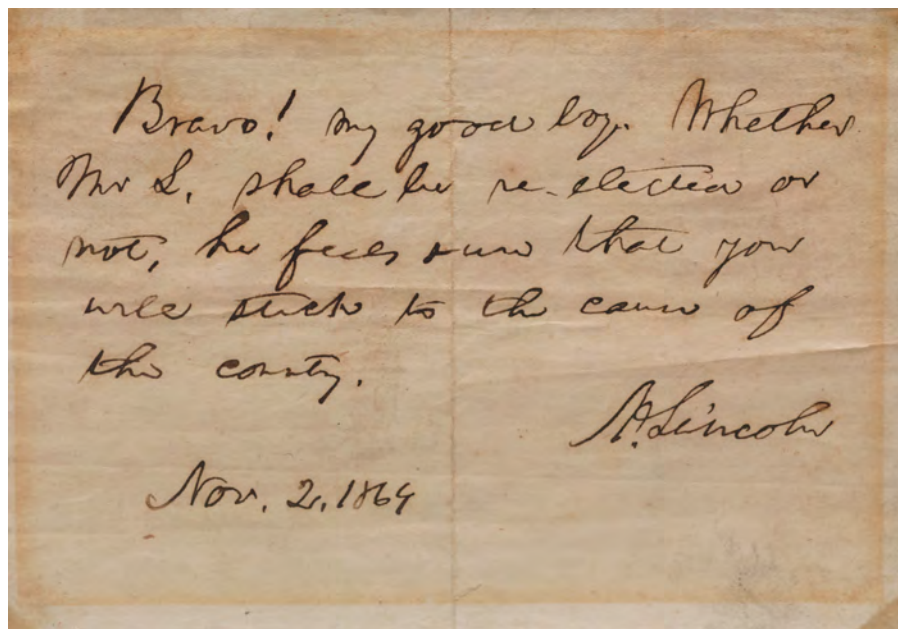 Bravo! my good boy. Whether
Mr L. shall be re-elected or
not, he feels sure that you
will stick to the cause of
the country.
A. Lincoln
Nov. 2. 1864